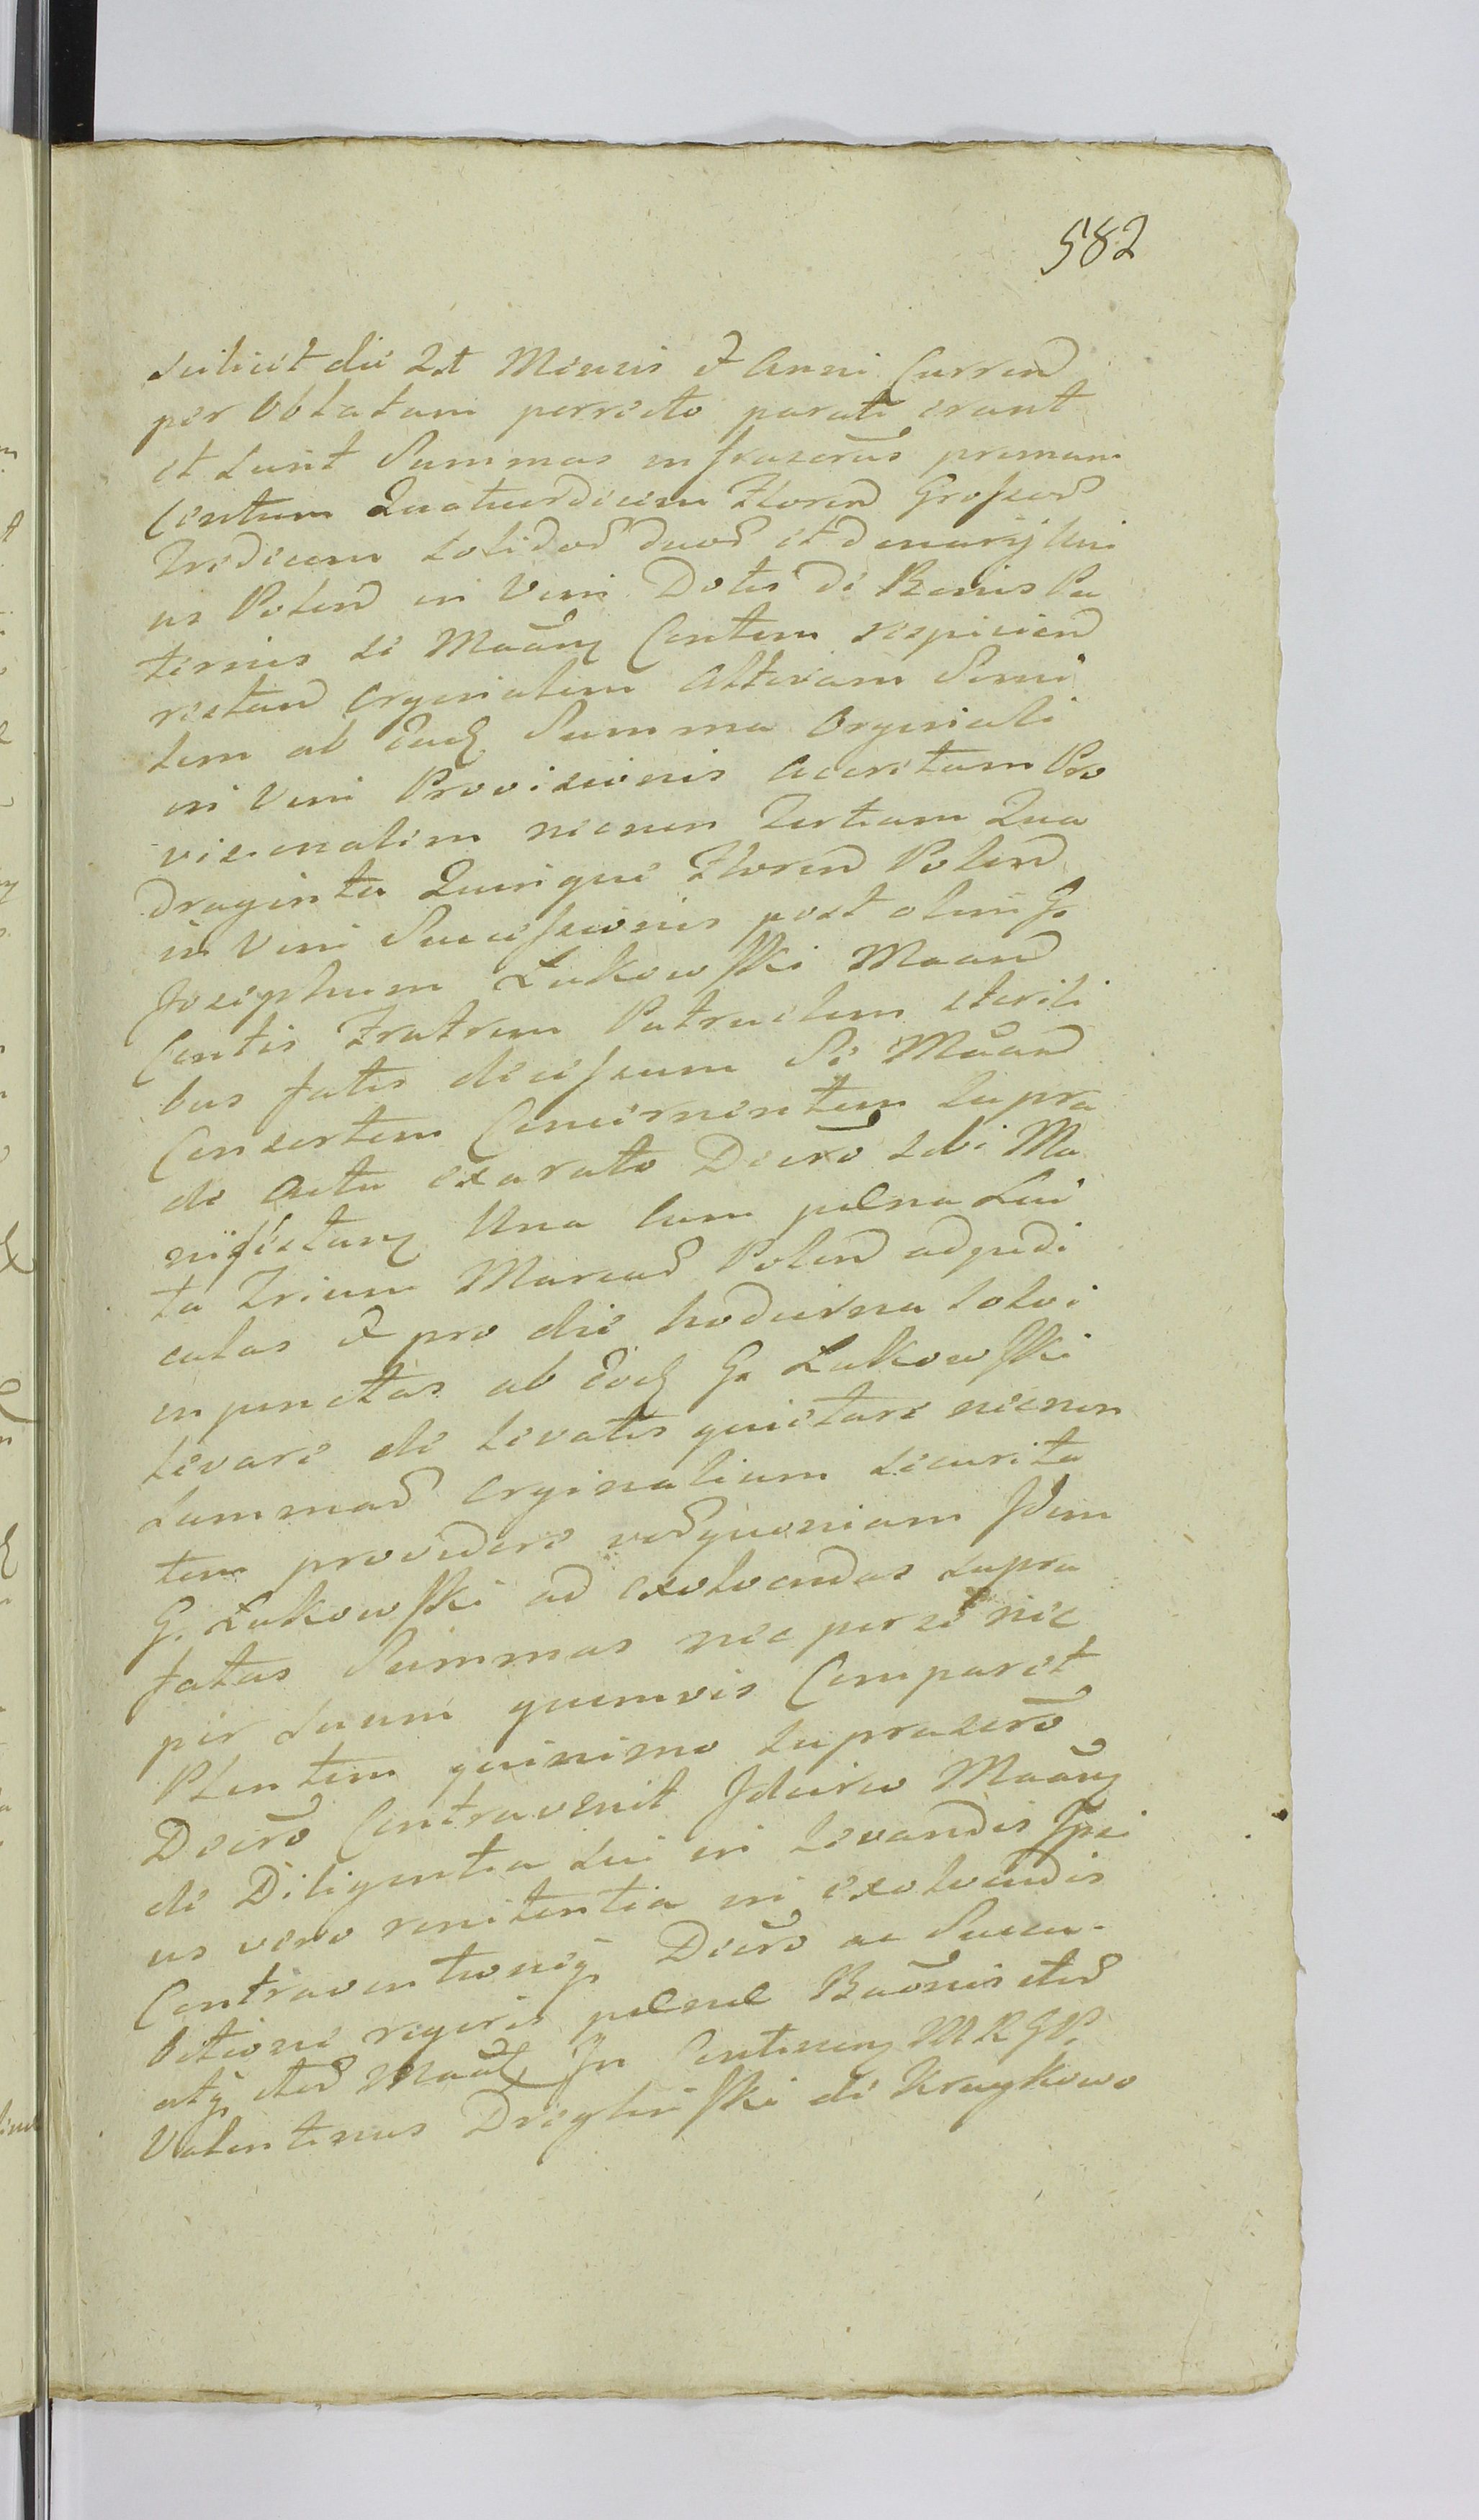 582
scilicet die 21 Mensis & Anni Curren
per Oblatam porrecto parati erant
et sunt Summas infrascras primam
Centum Quatuordecim Floren Grossor
Tredecim solidor duor et denarij Uni
us Polon in Vim Dotis de Bonis Pa
ternis se Maan Conten respicien
rectam Orginalem Alteram Simi
lem ab Ead Summa Orginali
in Vim Provisionis Accretam Pro
visionalem necnon Tertiam Qua
draginta Quinque Floren Polon
in Vim Successionis post olim G.
Josephum Łukowski Maan
Contis Fratrem Patruelem sterili
bus fatis decessum Se Maan
Consortem Concernentem supra
de Actu exarato Decro sibi Ma
nifestan Una cum pœna Lui
ta Trium Marcar Polon adjudi
catas & pro die hodierna solvi
injunctas ab Eod G. Łukowski
levare de levatis quietare necnon
summar orginalium securita
tem providere verquoniam Idem
G. Łukowski ad exolvendas supra
fatas Summas nec per se nec
per suum quemvis Comparet
Plentem quinimo suprascro
Decro Contravenit Idcirco Maan
de Diligentia sui in levandis Ipsi
us vero renitentia in exolvendis
Contraventioneq Decro ac Succu-
bitione rigoris pœnœ Baonis iter
atq iter Maat In Continen M R G P.
Valentinus Drogliński de Kraykowo